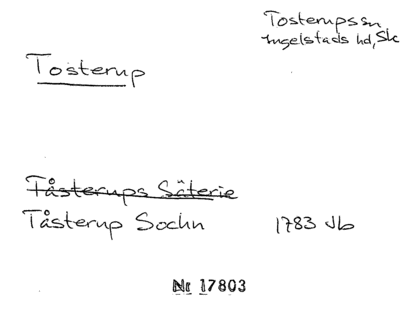 Tosterups sn
Ingelstads hd, Sk
Tosterup
Tåsterups Säterie
Tåsterup Sochn 1783 Jb
Nr 17803